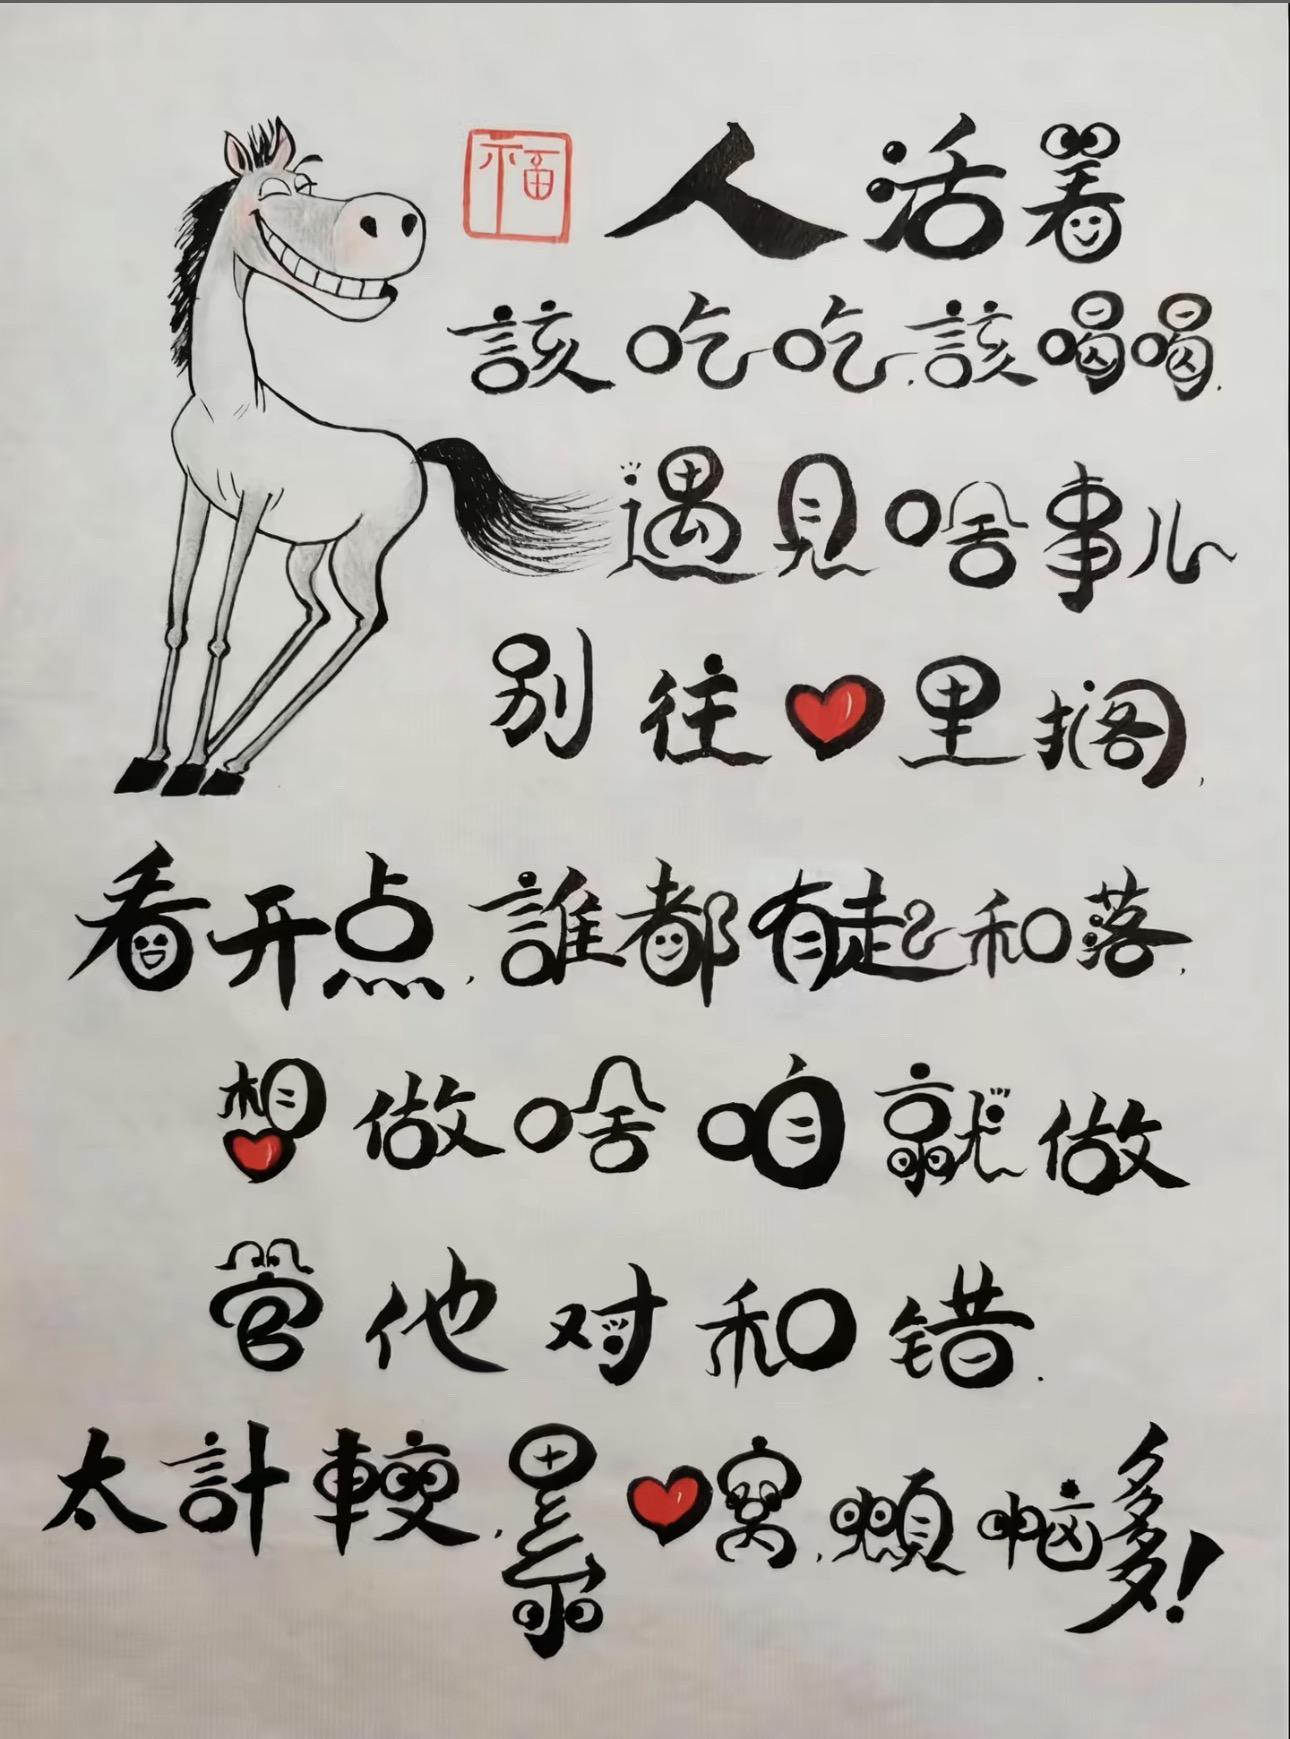 福
人活着
該吃吃.該喝喝.
遇見啥事儿
别往❤里搁,
看开点,誰都有起和落,
想做啥咱就做
管他对和错.
太計較,累❤窝,煩恼多!